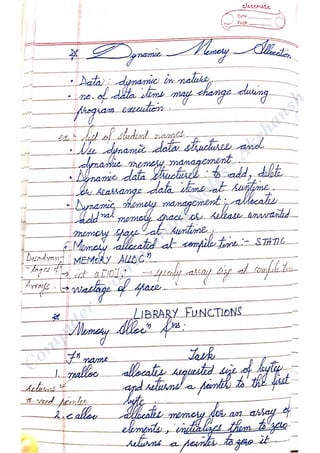 classmate
Date
Page
* Dynamic Memory Allocation
• Data: dynamic in nature
• no. of data items may change during
program execution.
ex - list of student names.
• Use dynamic data structures and
dynamic memory management
• Dynamic data structures: to add, delete
or rearrange data items at runtime.
• Dynamic memory management: allocates
addnal memory space or release unwanted
memory space at runtime.
• Memory allocated at compile time :- STATIC
MEMORY ALLOCn
Disadvan
-tages of
Arrays.
→ int a[10]; → specify array size at compile time
→ wastage of space.
* LIBRARY FUNCTIONS
Memory Allocn fns:
Fn name Task
1. malloc allocates requested size of bytes
and returns a pointer to the first
byte
returns
a void pointer
2. calloc allocates memory for an array of
elements, initializes them to zero
returns a pointer to it